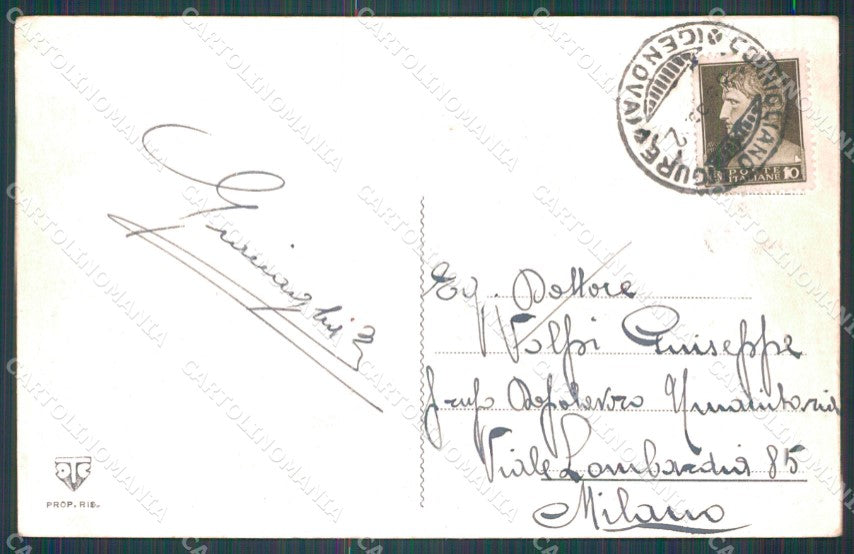 CORNIGLIANO LIGURE (GENOVA)
POSTE
ITALIANE 10
Eg. Dottore
Volpi Giuseppe
Grupo Dopolavoro Umanitaria
Viale Lombardia 85
Milano
PROP. RIS.
CARTOLINOMANIA